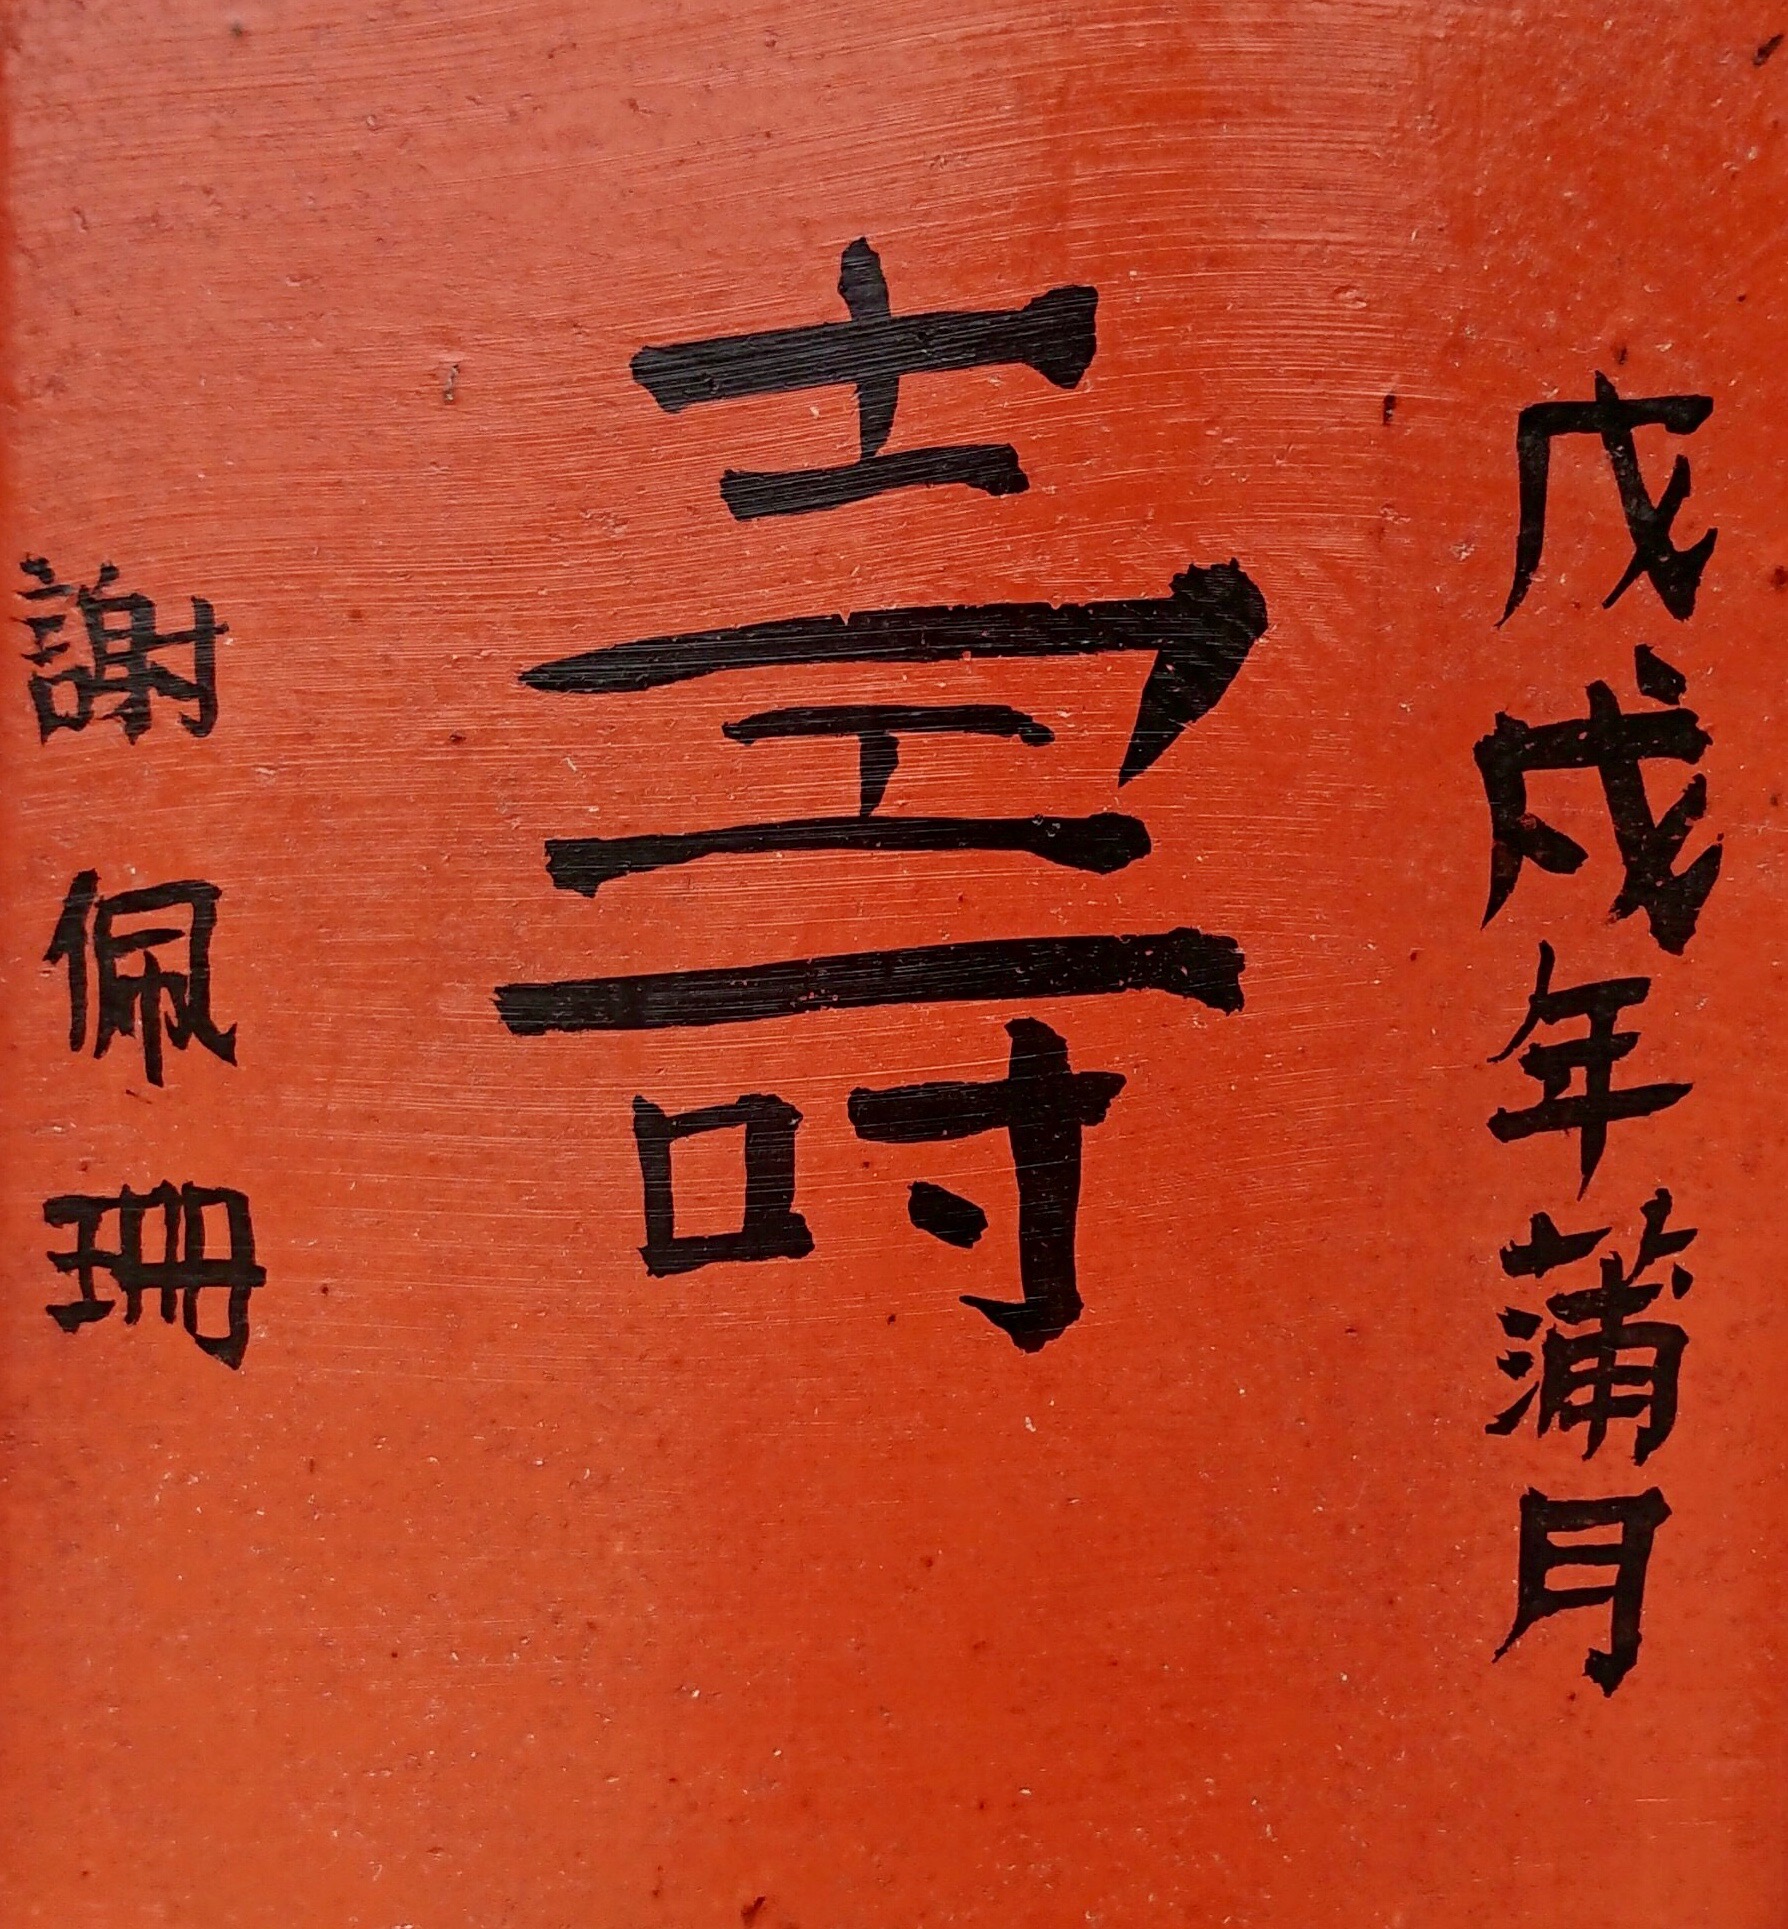 戊戌年蒲月
壽
謝佩珊